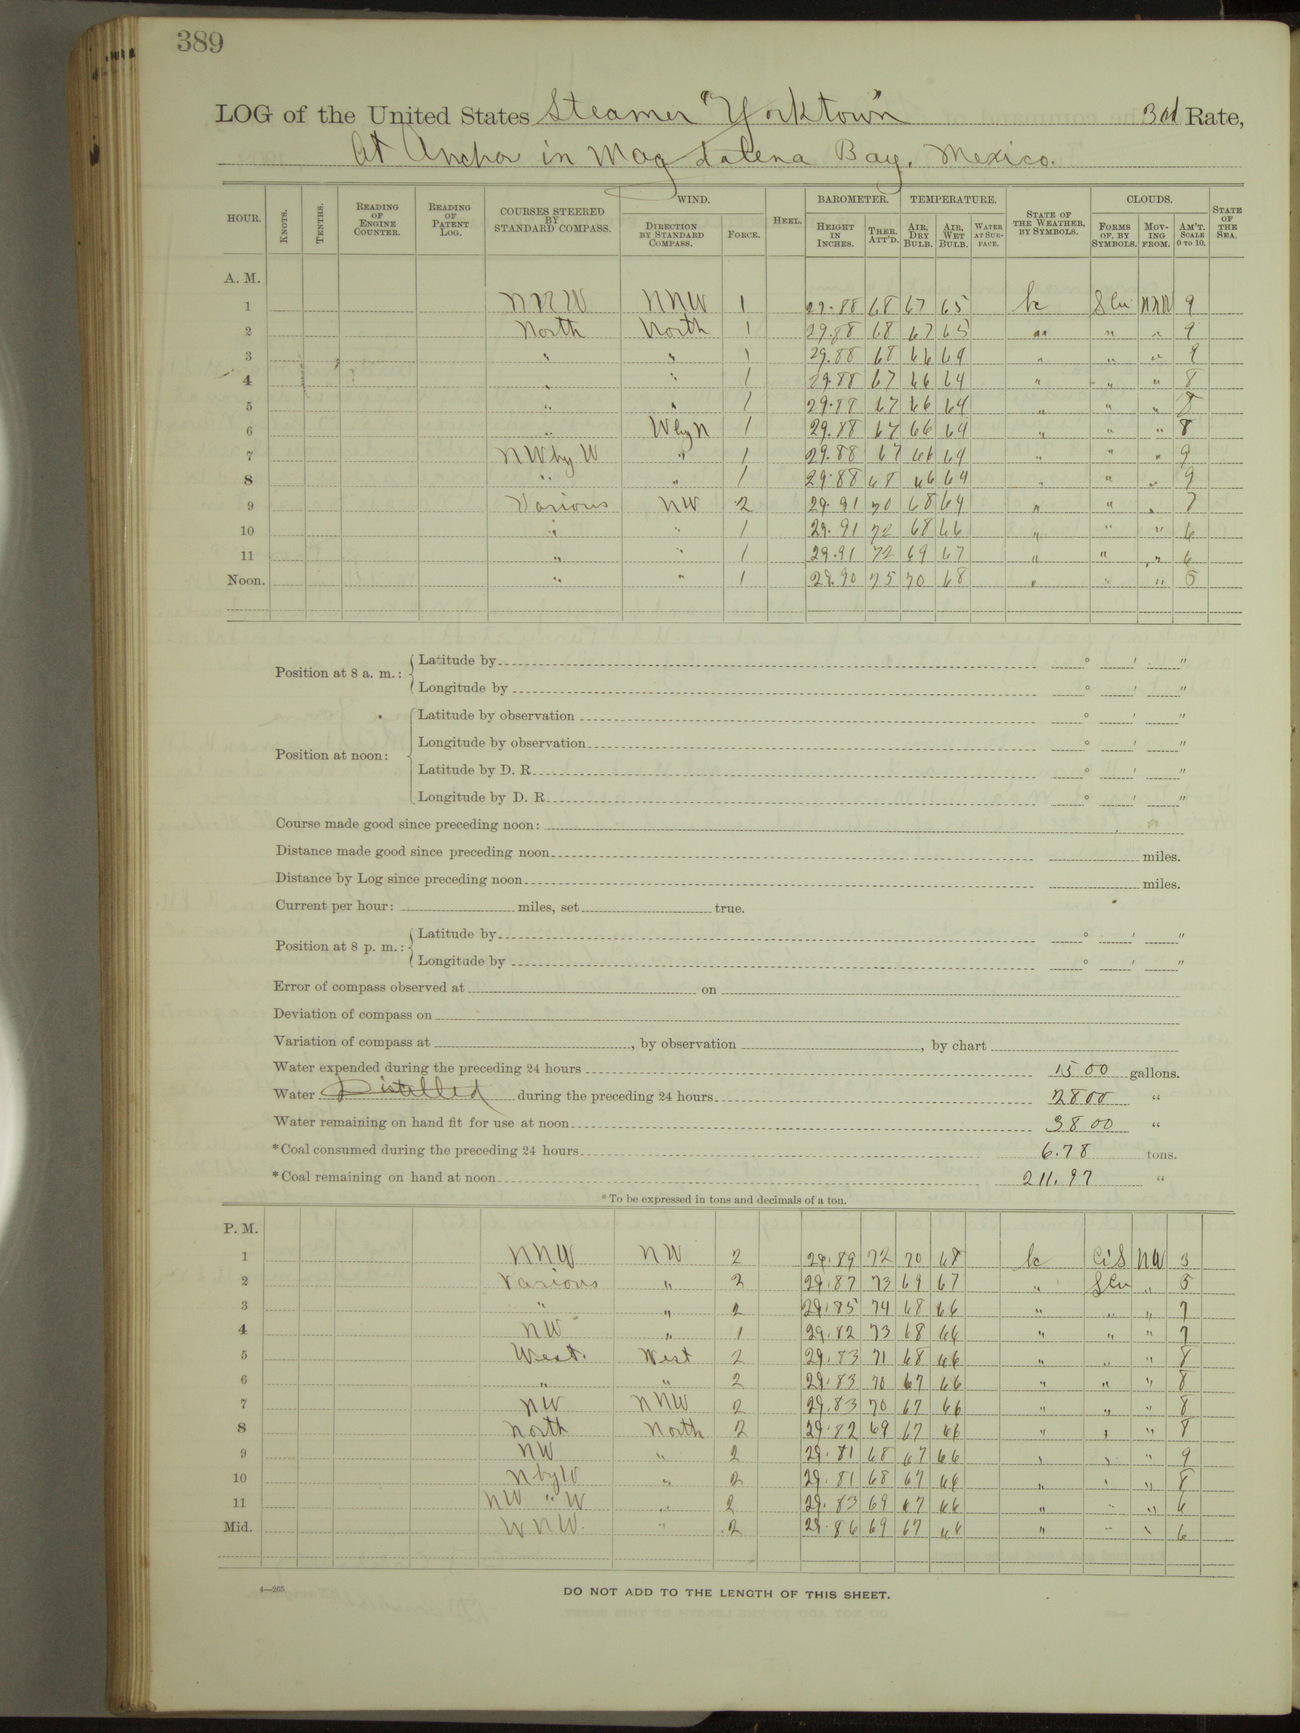 389
LOG of the United States Steamer "Yorktown" 3rd Rate,
At Anchor in Magdalena Bay, Mexico.
HOUR. KNOTS. TENTHS. READING OF ENGINE COUNTER. READING OF PATENT LOG. COURSES STEERED BY STANDARD COMPASS. WIND. DIRECTION BY STANDARD COMPASS. FORCE. HEEL. BAROMETER. HEIGHT IN INCHES. THER. ATT'D. TEMPERATURE. AIR, DRY BULB. AIR, WET BULB. WATER AT SURFACE. STATE OF THE WEATHER, BY SYMBOLS. CLOUDS. FORMS OF, BY SYMBOLS. MOVING FROM. AM'T. SCALE 0 TO 10. STATE OF THE SEA.
A. M.
1 NNW NNW 1 29.88 68 67 65 bc SCu NNW 9
2 North North 1 29.88 68 67 65 " " " 9
3 " " 1 29.88 68 66 64 " " " 9
4 " " 1 29.88 67 66 64 " " " 8
5 " " 1 29.88 67 66 64 " " " 8
6 " W by N 1 29.88 67 66 64 " " " 8
7 NW by W " 1 29.88 67 66 64 " " " 9
8 " " 1 29.88 68 66 64 " " " 9
9 Various NW 2 29.91 70 68 64 " " " 7
10 " " 1 29.91 72 68 66 " " " 6
11 " " 1 29.91 72 69 67 " " " 6
Noon. " " 1 29.90 75 70 68 " " " 5
Position at 8 a. m.: Latitude by ° ' "
Longitude by ° ' "
Position at noon: Latitude by observation ° ' "
Longitude by observation ° ' "
Latitude by D. R. ° ' "
Longitude by D. R. ° ' "
Course made good since preceding noon:
Distance made good since preceding noon miles.
Distance by Log since preceding noon miles.
Current per hour: miles, set true.
Position at 8 p. m.: Latitude by ° ' "
Longitude by ° ' "
Error of compass observed at on
Deviation of compass on
Variation of compass at , by observation , by chart
Water expended during the preceding 24 hours 1500 gallons.
Water Distilled during the preceding 24 hours 2800 "
Water remaining on hand fit for use at noon 3800 "
*Coal consumed during the preceding 24 hours 6.78 tons.
*Coal remaining on hand at noon 211.97 "
*To be expressed in tons and decimals of a ton.
P. M.
1 NNW NW 2 29.89 72 70 68 bc CiS NW 3
2 Various " 2 29.87 73 69 67 " SCu " 5
3 " " 2 29.85 74 68 66 " " " 7
4 NW " 1 29.82 73 68 66 " " " 7
5 West. West 2 29.83 71 68 66 " " " 8
6 " " 2 29.83 70 67 66 " " " 8
7 NW NNW 2 29.83 70 67 66 " " " 8
8 North North 2 29.82 69 67 66 " " " 8
9 NW " 2 29.81 68 67 66 " " " 9
10 N by W " 2 29.81 68 67 66 " " " 8
11 NW " W " 2 29.83 69 67 66 " " " 6
Mid. WNW. " 2 29.86 69 67 66 " " " 6
4—265
DO NOT ADD TO THE LENGTH OF THIS SHEET.